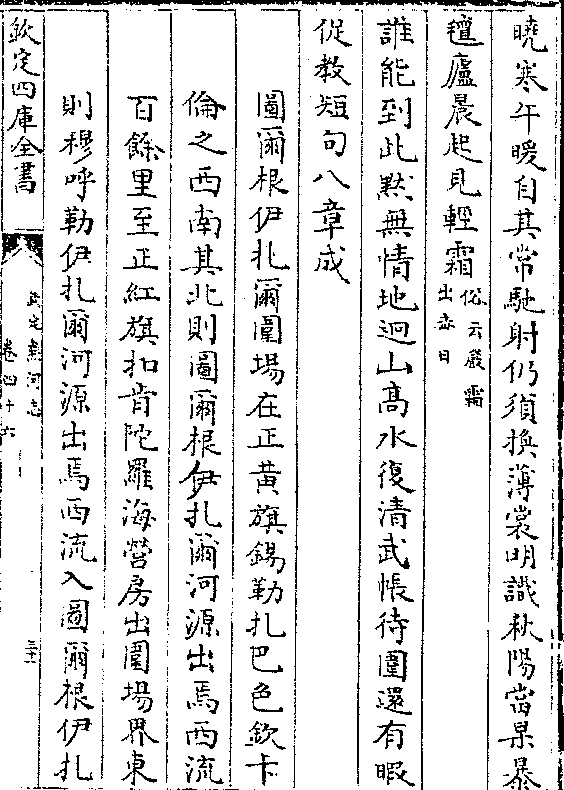 曉寒午暖自其常馳射仍須換薄裳明識秋陽當杲暴
氊廬晨起見輕霜俗云嚴霜出毒日
誰能到此默無情地迥山高水復清武帳待圍還有暇
促教短句八章成
圖爾根伊扎爾圍場在正黃旗錫勒扎巴色欽卡
倫之西南其北則圖爾根伊扎爾河源出焉西流
百餘里至正紅旗扣肯陀羅海營房出圍場界東
則穆呼勒伊扎爾河源出焉西流入圖爾根伊扎
欽定四庫全書
欽定熱河志
卷四十六